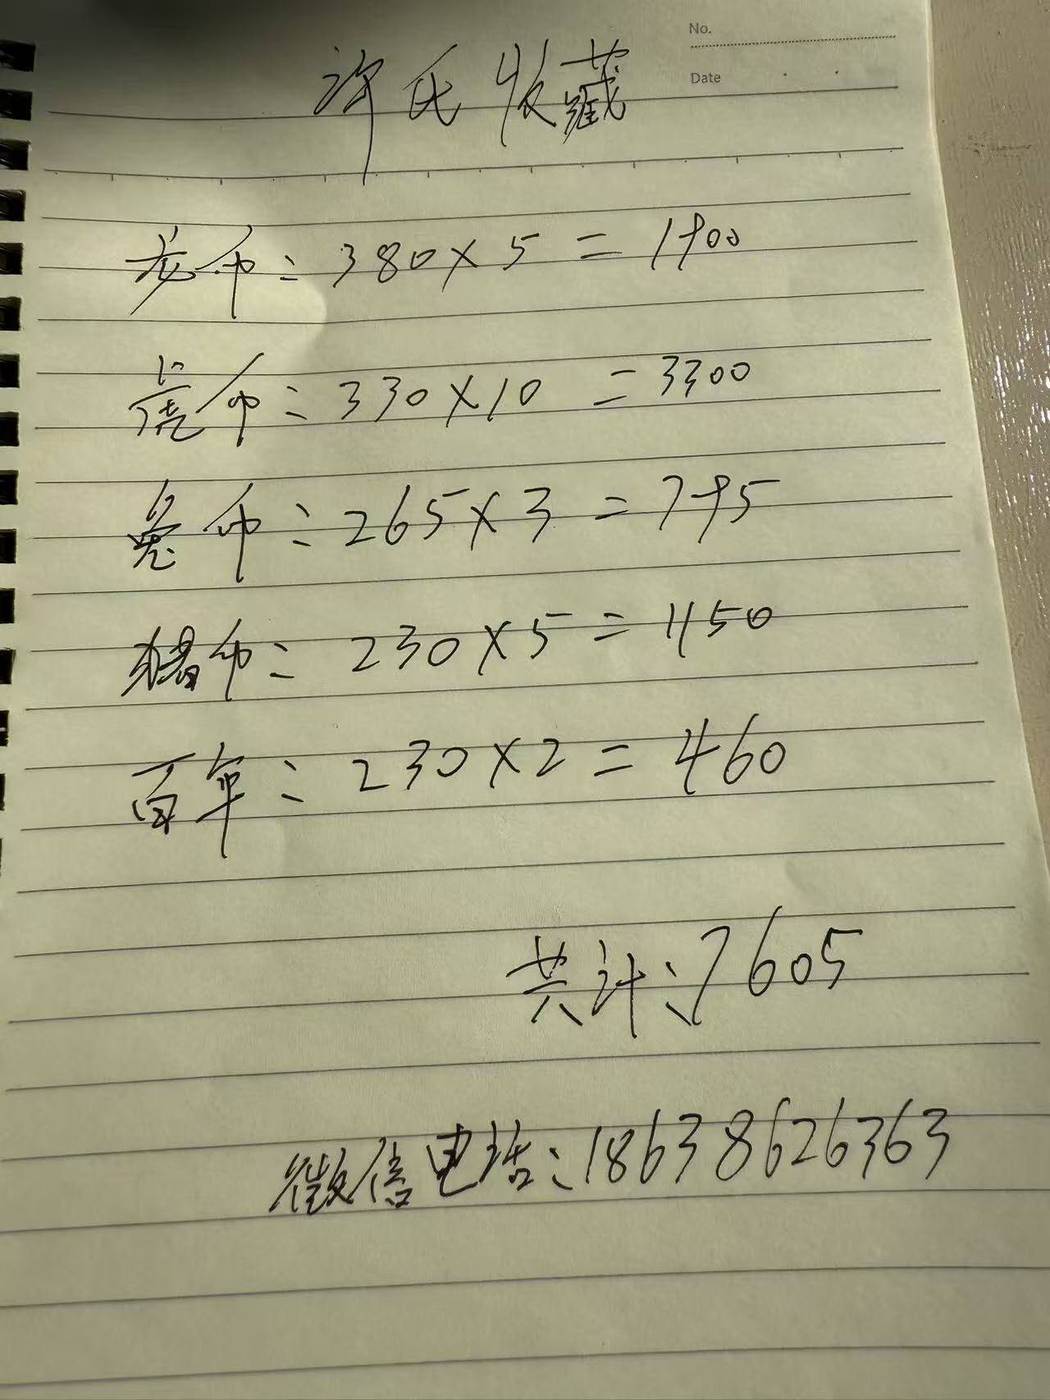 No.
Date
许氏收藏
币：380×5=1900
虎币：330×10=3300
兔币：265×3=795
猪币：230×5=1150
百年：230×2=460
共计：7605
微信电话：18638626363